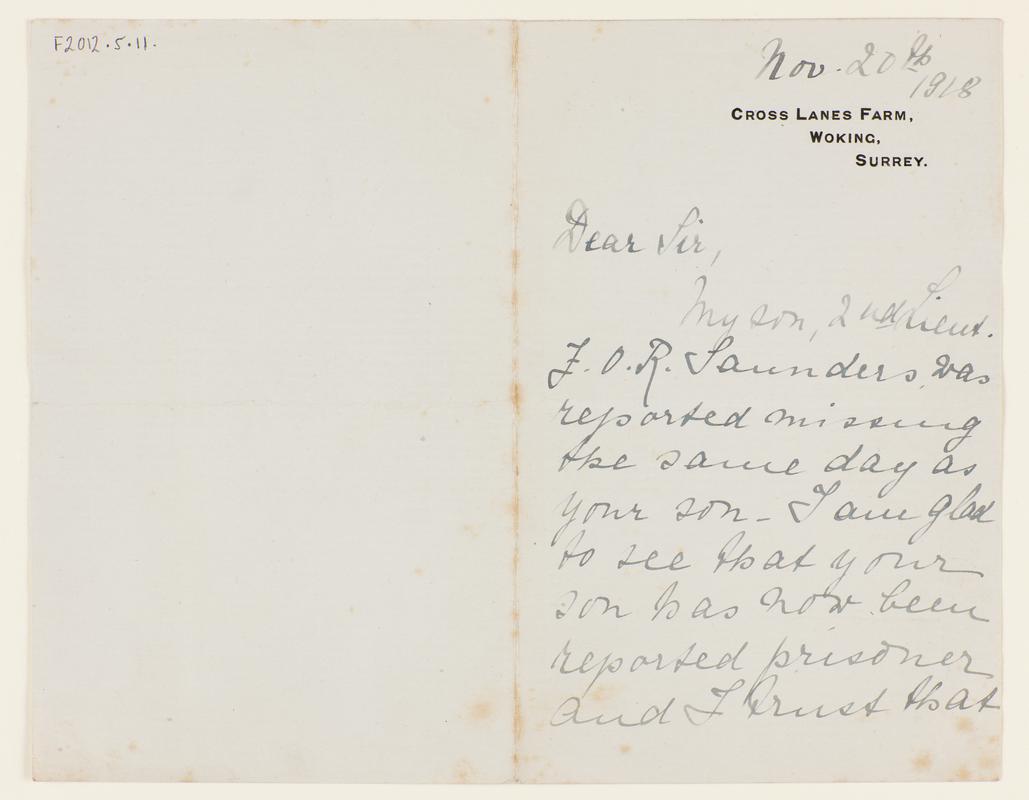 F2012.5.11.
Nov. 20th
1918
CROSS LANES FARM,
WOKING,
SURREY.
Dear Sir,
My son, 2nd Lieut.
F. O. R. Saunders, was
reported missing
the same day as
your son - I am glad
to see that your
son has now been
reported prisoner
and I trust that